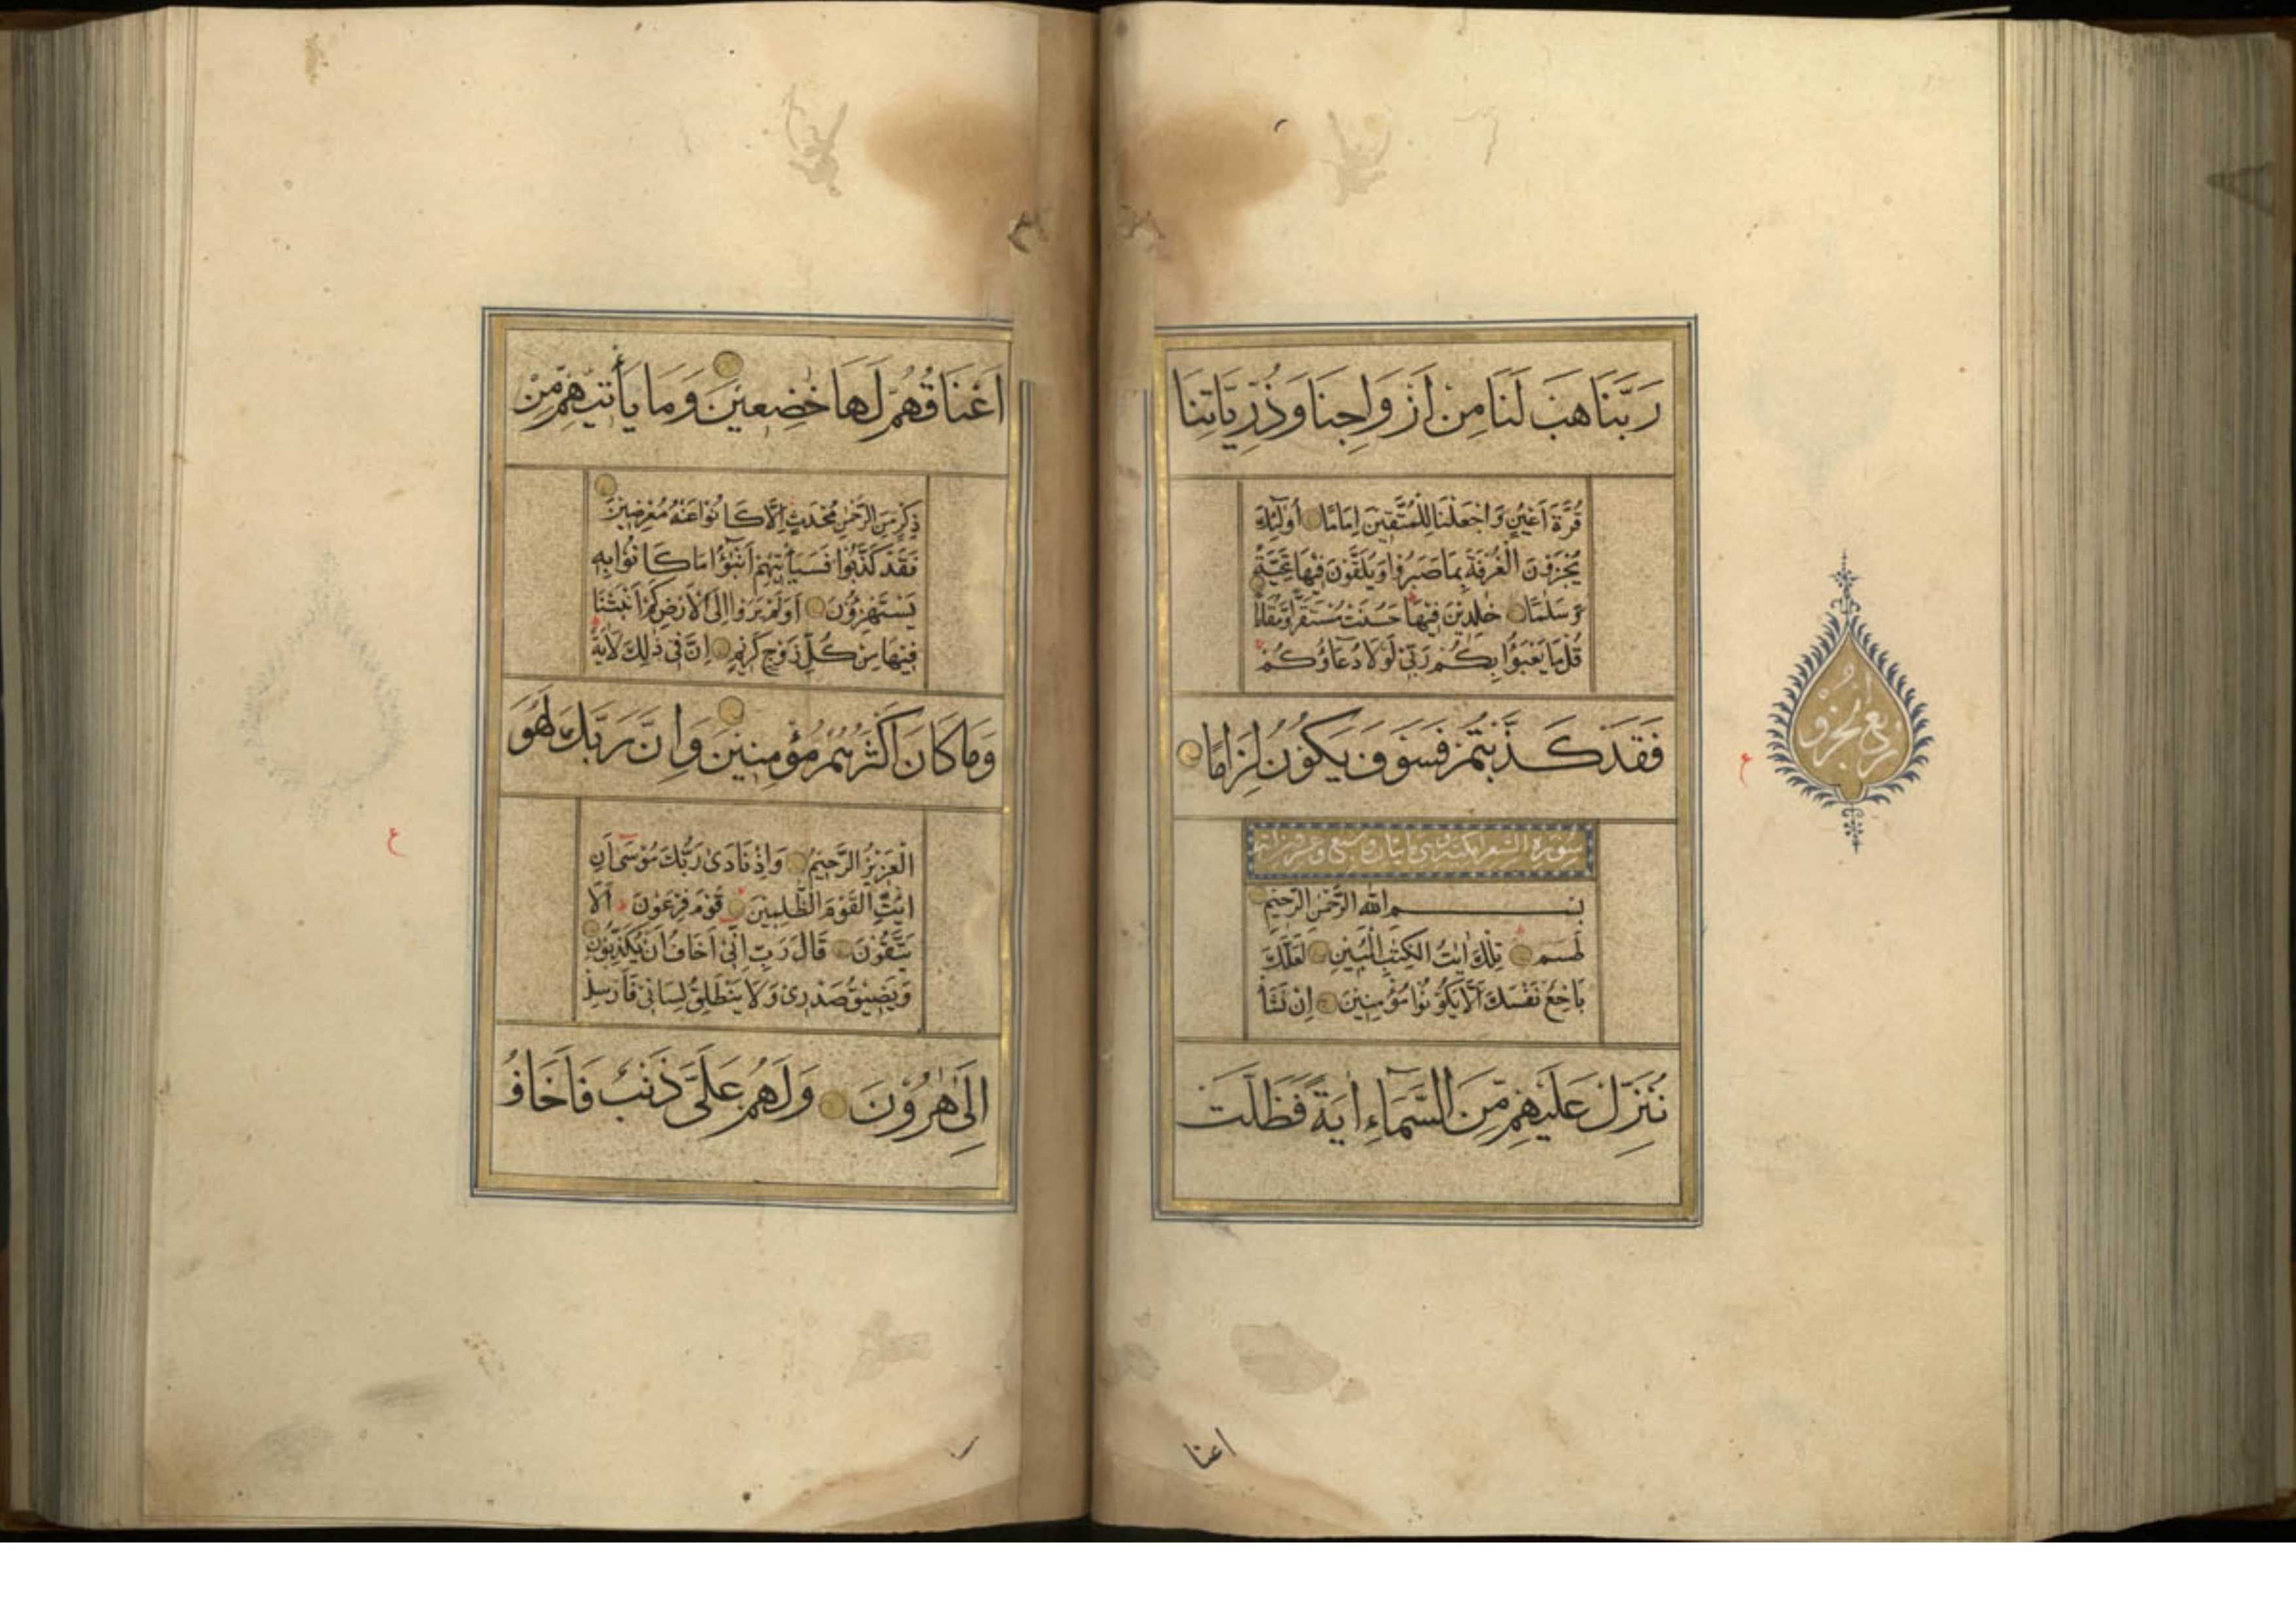 رَبَّنَا هَبْ لَنَا مِنْ اَزْوَاجِنَا وَذُرِّيَّاتِنَا
قُرَّةَ اَعْيُنٍ وَاجْعَلْنَا لِلْمُتَّقِينَ اِمَامًا اُولٰٓئِكَ
يُجْزَوْنَ الْغُرْفَةَ بِمَا صَبَرُوا وَيُلَقَّوْنَ فِيهَا تَحِيَّةً
وَسَلٰمًا خٰلِدِينَ فِيهَا حَسُنَتْ مُسْتَقَرًّا وَمُقَامًا
قُلْ مَا يَعْبَؤُا بِكُمْ رَبِّى لَوْلَا دُعَاؤُكُمْ
فَقَدْ كَذَّبْتُمْ فَسَوْفَ يَكُونُ لِزَامًا
سورة الشعرا
بِسْمِ اللهِ الرَّحْمٰنِ الرَّحِيمِ
طٰسٓمٓ تِلْكَ اٰيٰتُ الْكِتٰبِ الْمُبِينِ لَعَلَّكَ
بَاخِعٌ نَفْسَكَ اَلَّا يَكُونُوا مُؤْمِنِينَ اِنْ نَشَأْ
نُنَزِّلْ عَلَيْهِمْ مِّنَ السَّمَآءِ اٰيَةً فَظَلَّتْ
اعنا
ربع الجزو
ع
اَعْنَاقُهُمْ لَهَا خٰضِعِينَ وَمَا يَأْتِيهِمْ مِّنْ
ذِكْرٍ مِنَ الرَّحْمٰنِ مُحْدَثٍ اِلَّا كَانُوا عَنْهُ مُعْرِضِينَ
فَقَدْ كَذَّبُوا فَسَيَأْتِيهِمْ اَنْبٰٓؤُا مَا كَانُوا بِهِ
يَسْتَهْزِؤُنَ اَوَلَمْ يَرَوْا اِلَى الْاَرْضِ كَمْ اَنْبَتْنَا
فِيهَا مِنْ كُلِّ زَوْجٍ كَرِيمٍ اِنَّ فِى ذٰلِكَ لَاٰيَةً
وَمَا كَانَ اَكْثَرُهُمْ مُؤْمِنِينَ وَاِنَّ رَبَّكَ لَهُوَ
الْعَزِيزُ الرَّحِيمُ وَاِذْ نَادٰى رَبُّكَ مُوسٰٓى اَنِ
ائْتِ الْقَوْمَ الظّٰلِمِينَ قَوْمَ فِرْعَوْنَ اَلَا
يَتَّقُونَ قَالَ رَبِّ اِنِّى اَخَافُ اَنْ يُكَذِّبُونِ
وَيَضِيقُ صَدْرِى وَلَا يَنْطَلِقُ لِسَانِى فَاَرْسِلْ
اِلٰى هٰرُونَ وَلَهُمْ عَلَىَّ ذَنْبٌ فَاَخَافُ
ع